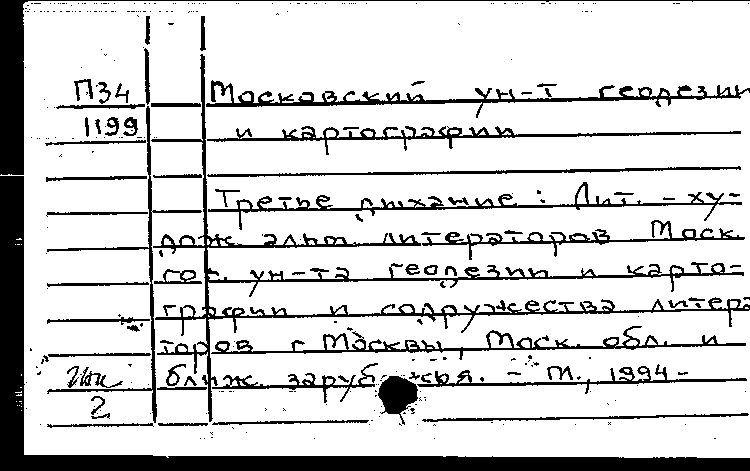 П34 Московский ун-т геодезии
1199 и картографии
Третье дыхание : Лит. - ху-
дож. альм. литераторов Моск.
гос. ун-та геодезии и карто-
графии и содружества литера
торов г. Москвы, Моск. обл. и
ближ. зарубежья. - М., 1994 -
2